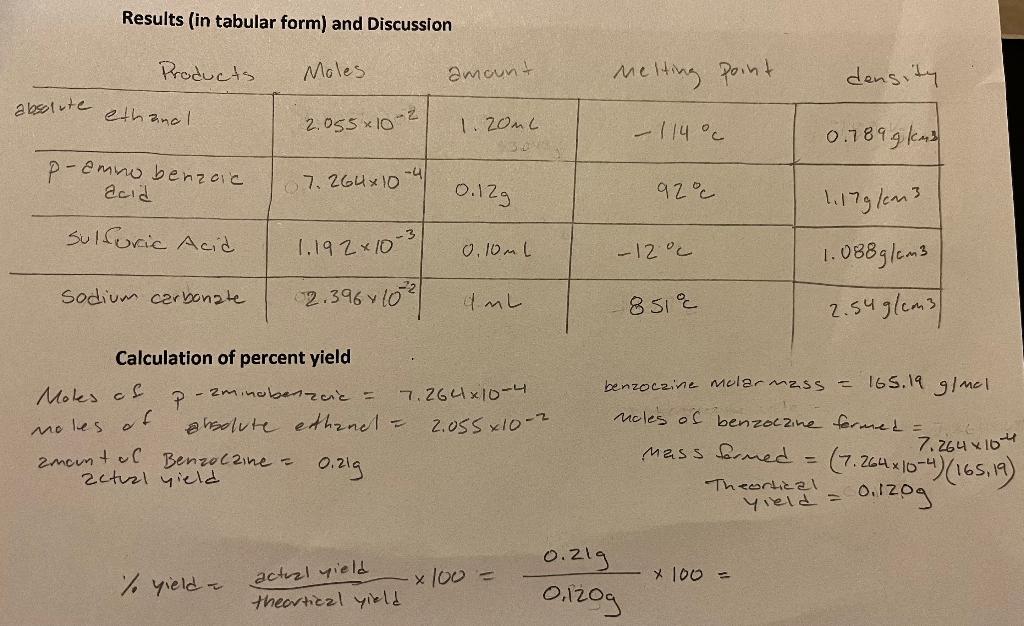 Results (in tabular form) and Discussion
Products Moles amount Melting Point density
absolute ethanol 2.055 x10-2 1.20mL -114 °c 0.789g/cm3
p-amino benzoic acid 7.264x10-4 0.12g 92°c 1.17g/cm3
Sulfuric Acid 1.192x10-3 0.10mL -12 °c 1.088g/cm3
Sodium carbonate 2.396x10-2 4mL 851°c 2.54 g/cm3
Calculation of percent yield
Moles of p-aminobenzoic = 7.264x10-4
moles of absolute ethanol = 2.055x10-2
amount of Benzocaine = 0.21g
actual yield
benzocaine Molar mass = 165.19 g/mol
Moles of benzocaine formed =
7.264x10-4
Mass formed = (7.264x10-4)(165.19)
Theortical yield = 0.120g
% yield = actual yield / theortical yield x100 = 0.21g / 0.120g x 100 =